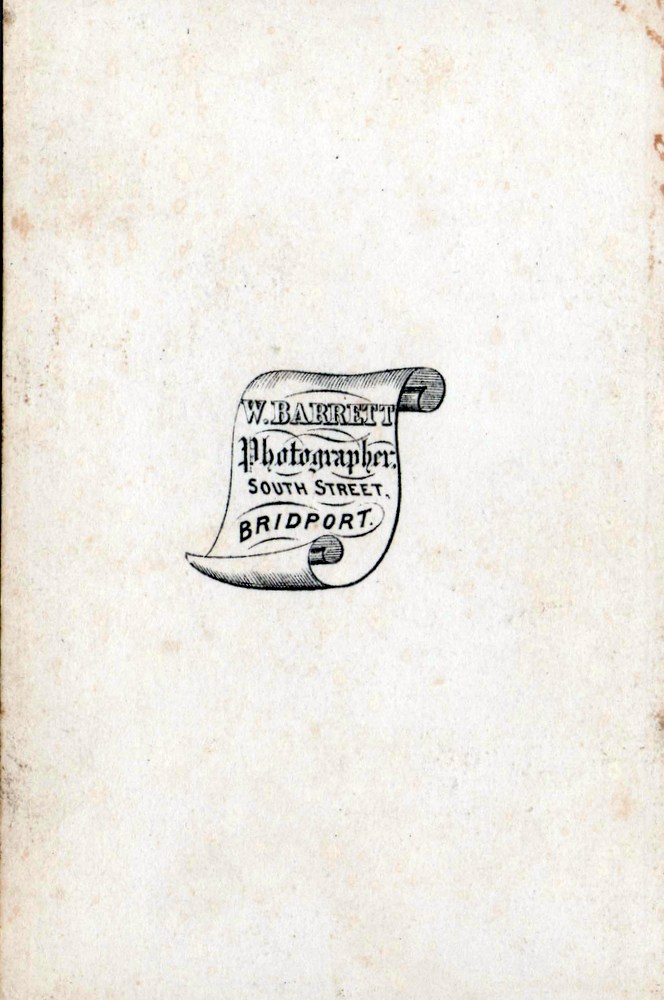 W. BARRETT
Photographer.
SOUTH STREET,
BRIDPORT.